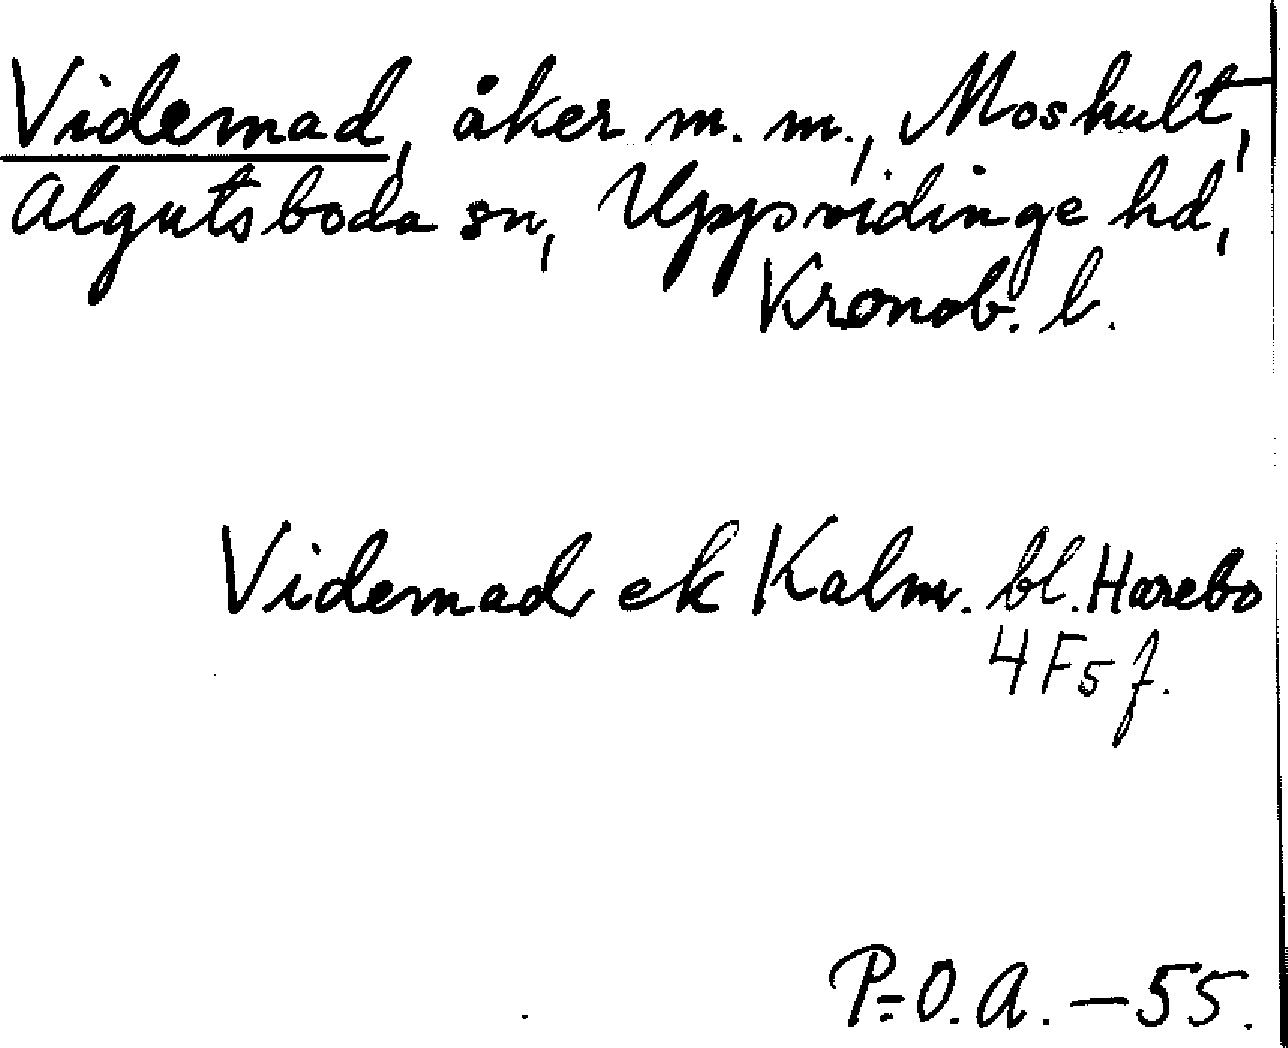 Videmad, åker m. m., Moshult,
Algutsboda sn, Uppvidinge hd,
Kronob. l.
Videmad ek Kalm. bl. Harebo
4 F5 f.
P.-O. A. – 55.